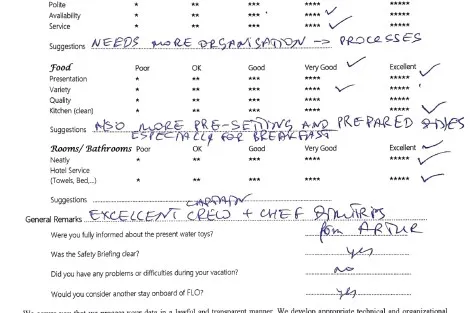 Polite * ** *** **** *****
Availability * ** *** **** *****
Service * ** *** **** *****
Suggestions NEEDS MORE ORGANISATION -> PROCESSES
Food Poor OK Good Very Good Excellent
Presentation * ** *** **** *****
Variety * ** *** **** *****
Quality * ** *** **** *****
Kitchen (clean) * ** *** **** *****
Suggestions ALSO MORE PRE-SETTING AND PREPARED
ESPECIALLY FOR BREAKFAST
Rooms/ Bathrooms Poor OK Good Very Good Excellent
Neatly * ** *** **** *****
Hotel Service
(Towels, Bed,..) * ** *** **** *****
Suggestions
CAPTAIN
General Remarks EXCELLENT CREW + CHEF DIMITRIS
from ARTUR
Were you fully informed about the present water toys?
Was the Safety Briefing clear? yes
Did you have any problems or difficulties during your vacation? no
Would you consider another stay onboard of FLO? yes
We assure you that we process your data in a lawful and transparent manner. We develop appropriate technical and organizational